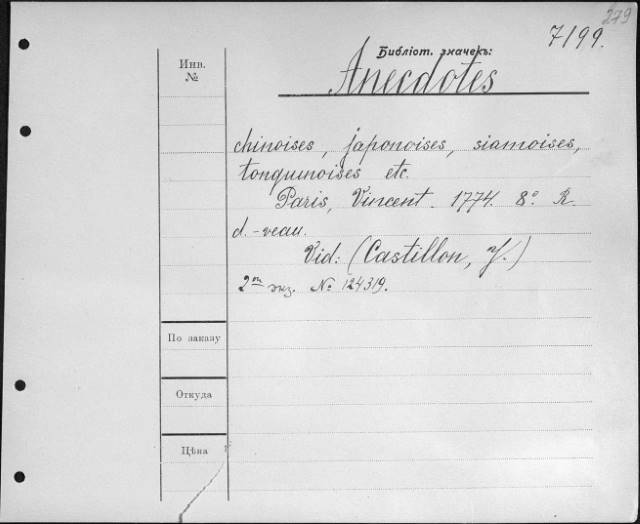 279
7199.
Библіот. значекъ:
Инв. №
Anecdotes
chinoises, japonoises, siamoises,
tonquinoises etc.
Paris, Vincent. 1774. 8º. R.
d.-veau.
Vid: (Castillon, J.)
2ой экз. № 124319.
По заказу
Откуда
Цѣна